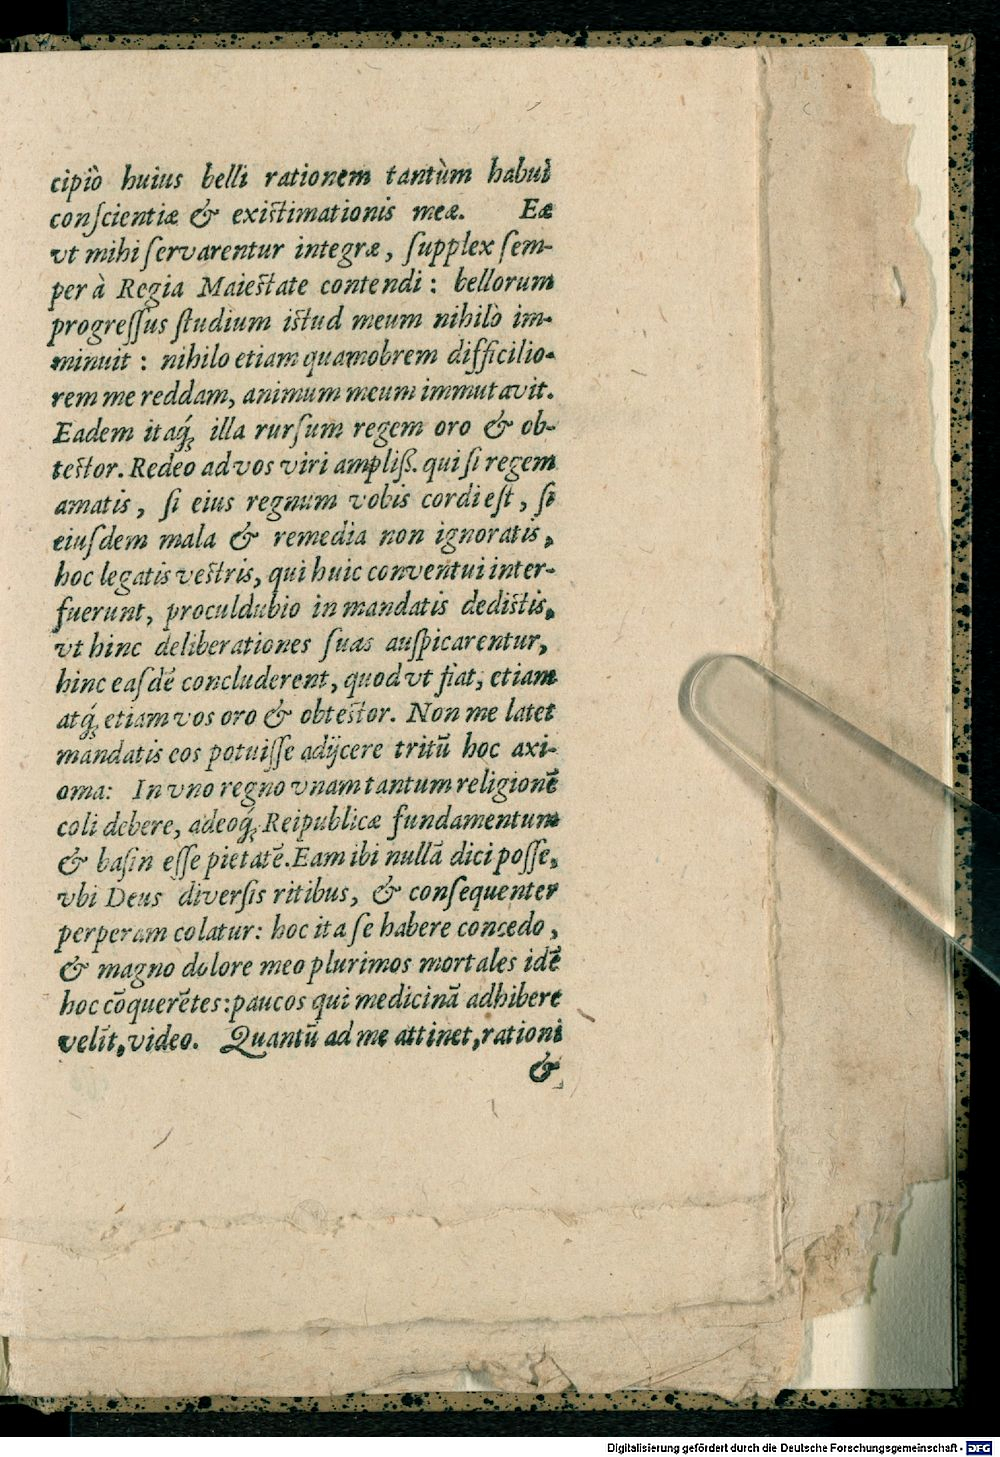 cipiò huius belli rationem tantùm habui
conſcientiæ & existimationis meæ. Eæ
vt mihi ſervarentur integræ, ſupplex ſem-
per à Regia Maiestate contendi: bellorum
progreſſus ſtudium istud meum nihilò im-
minuit: nihilo etiam quamobrem difficilio-
rem me reddam, animum meum immutavit.
Eadem itaq́; illa rurſum regem oro & ob-
testor. Redeo ad vos viri ampliß. qui ſi regem
amatis, ſi eius regnum vobis cordi eſt, ſi
eiuſdem mala & remedia non ignoratis,
hoc legatis vestris, qui huic conventui inter-
fuerunt, proculdubio in mandatis dedistis,
vt hinc deliberationes ſuas auſpicarentur,
hinc eaſdē concluderent, quod vt fiat, etiam
atq́; etiam vos oro & obtestor. Non me latet
mandatis eos potuiſſe adijcere tritū hoc axi-
oma: In vno regno vnam tantum religionē
coli debere, adeoq́; Reipublicæ fundamentum
& baſin eſſe pietatē. Eam ibi nullā dici poſſe,
vbi Deus diverſis ritibus, & conſequenter
perperam colatur: hoc ita ſe habere concedo,
& magno dolore meo plurimos mortales idē
hoc cōquerētes: paucos qui medicinā adhibere
velīt, video. Quantū ad me attinet, rationi
&
Digitalisierung gefördert durch die Deutsche Forschungsgemeinschaft - DFG